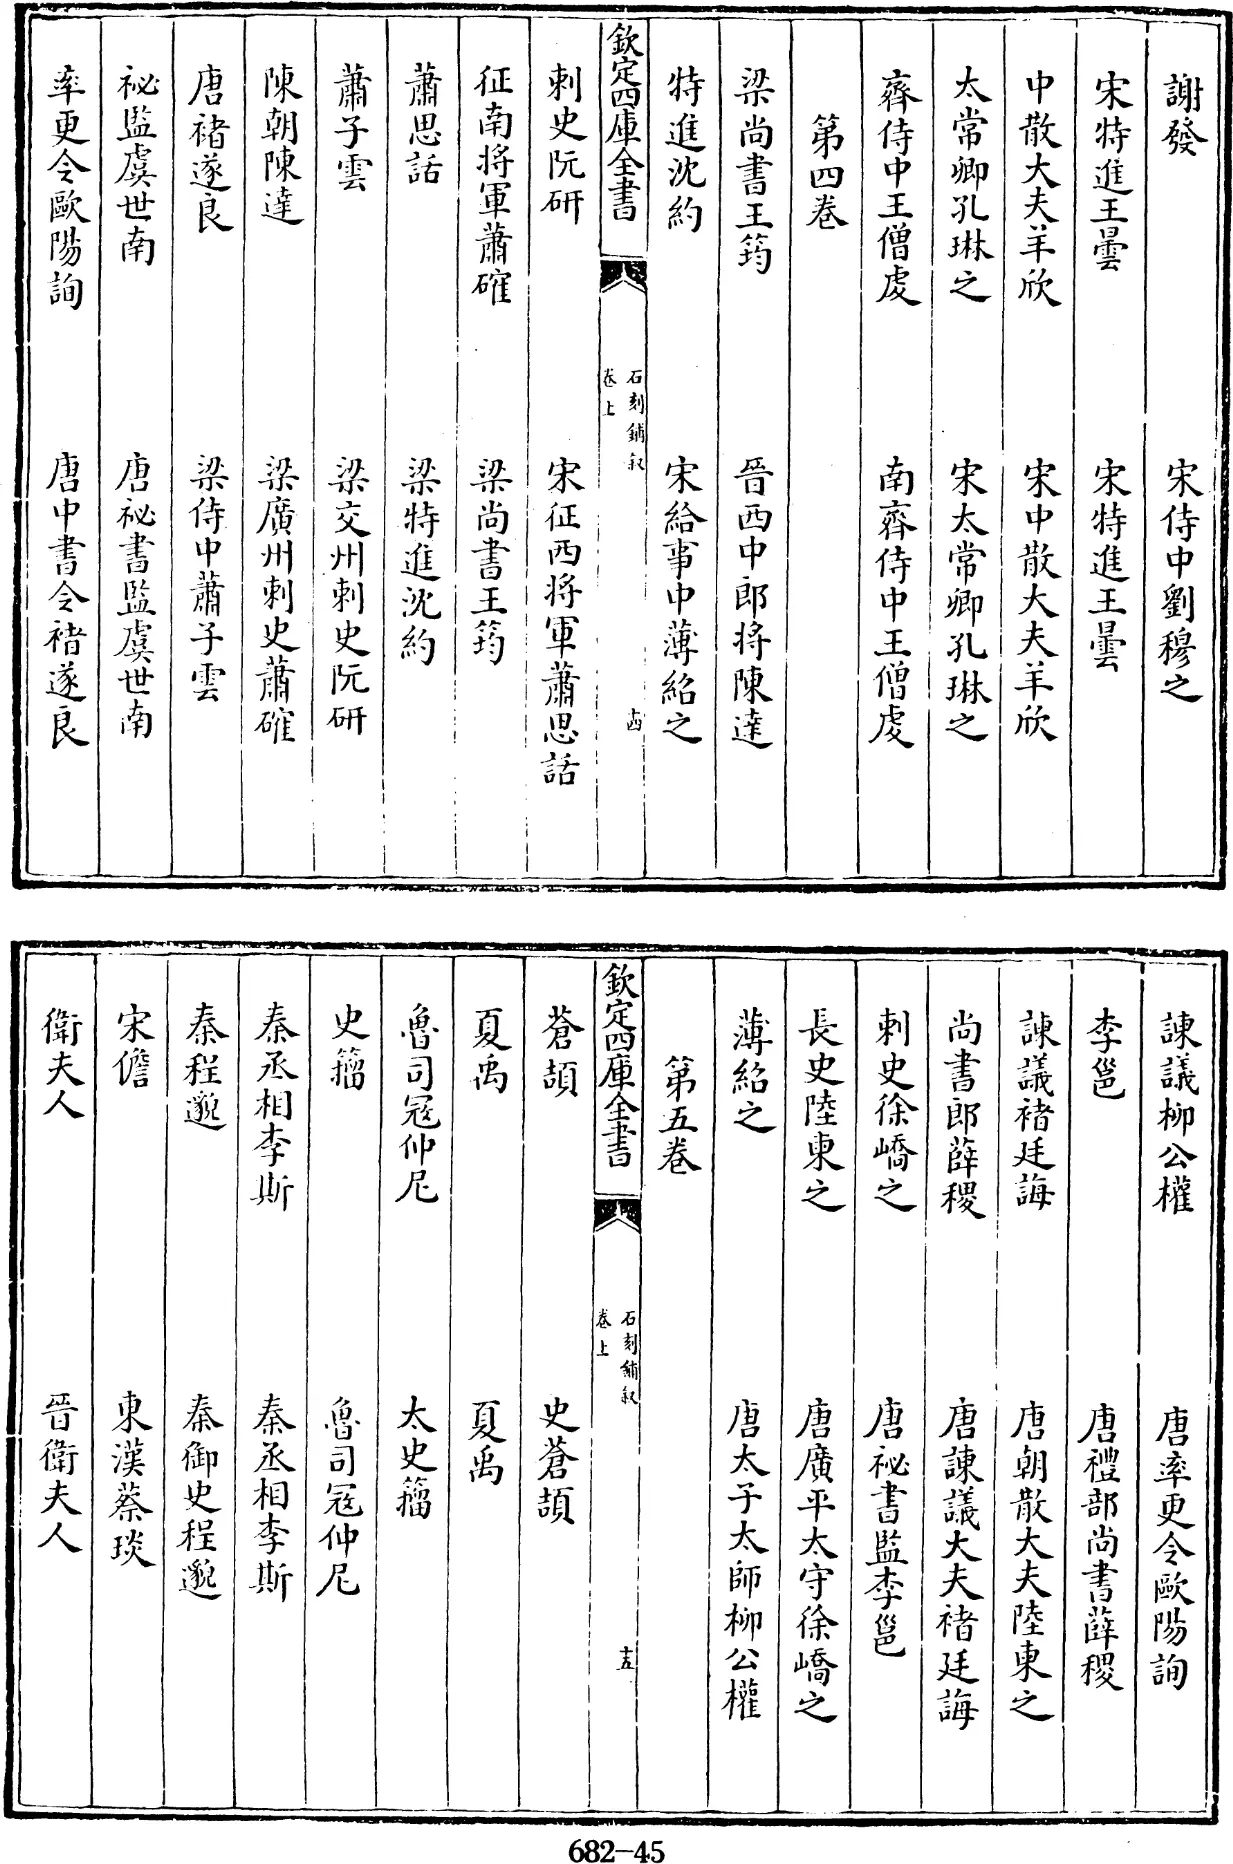 謝發　宋侍中劉穆之
宋特進王曇　宋特進王曇
中散大夫羊欣　宋中散大夫羊欣
太常卿孔琳之　宋太常卿孔琳之
齊侍中王僧虔　南齊侍中王僧虔
第四卷
梁尚書王筠　晉西中郎將陳逵
特進沈約　宋給事中薄紹之
欽定四庫全書　石刻鋪叙　卷上　十四
刺史阮研　宋征西將軍蕭思話
征南將軍蕭確　梁尚書王筠
蕭思話　梁特進沈約
蕭子雲　梁交州刺史阮研
陳朝陳逵　梁廣州刺史蕭確
唐褚遂良　梁侍中蕭子雲
祕監虞世南　唐祕書監虞世南
率更令歐陽詢　唐中書令褚遂良
諫議柳公權　唐率更令歐陽詢
李邕　唐禮部尚書薛稷
諫議褚廷誨　唐朝散大夫陸柬之
尚書郎薛稷　唐諫議大夫褚廷誨
刺史徐嶠之　唐祕書監李邕
長史陸柬之　唐廣平太守徐嶠之
薄紹之　唐太子太師柳公權
第五卷
欽定四庫全書　石刻鋪叙　卷上　十五
蒼頡　史蒼頡
夏禹　夏禹
魯司冦仲尼　太史籀
史籀　魯司冦仲尼
秦丞相李斯　秦丞相李斯
秦程邈　秦御史程邈
宋儋　東漢蔡琰
衛夫人　晉衛夫人
682-45